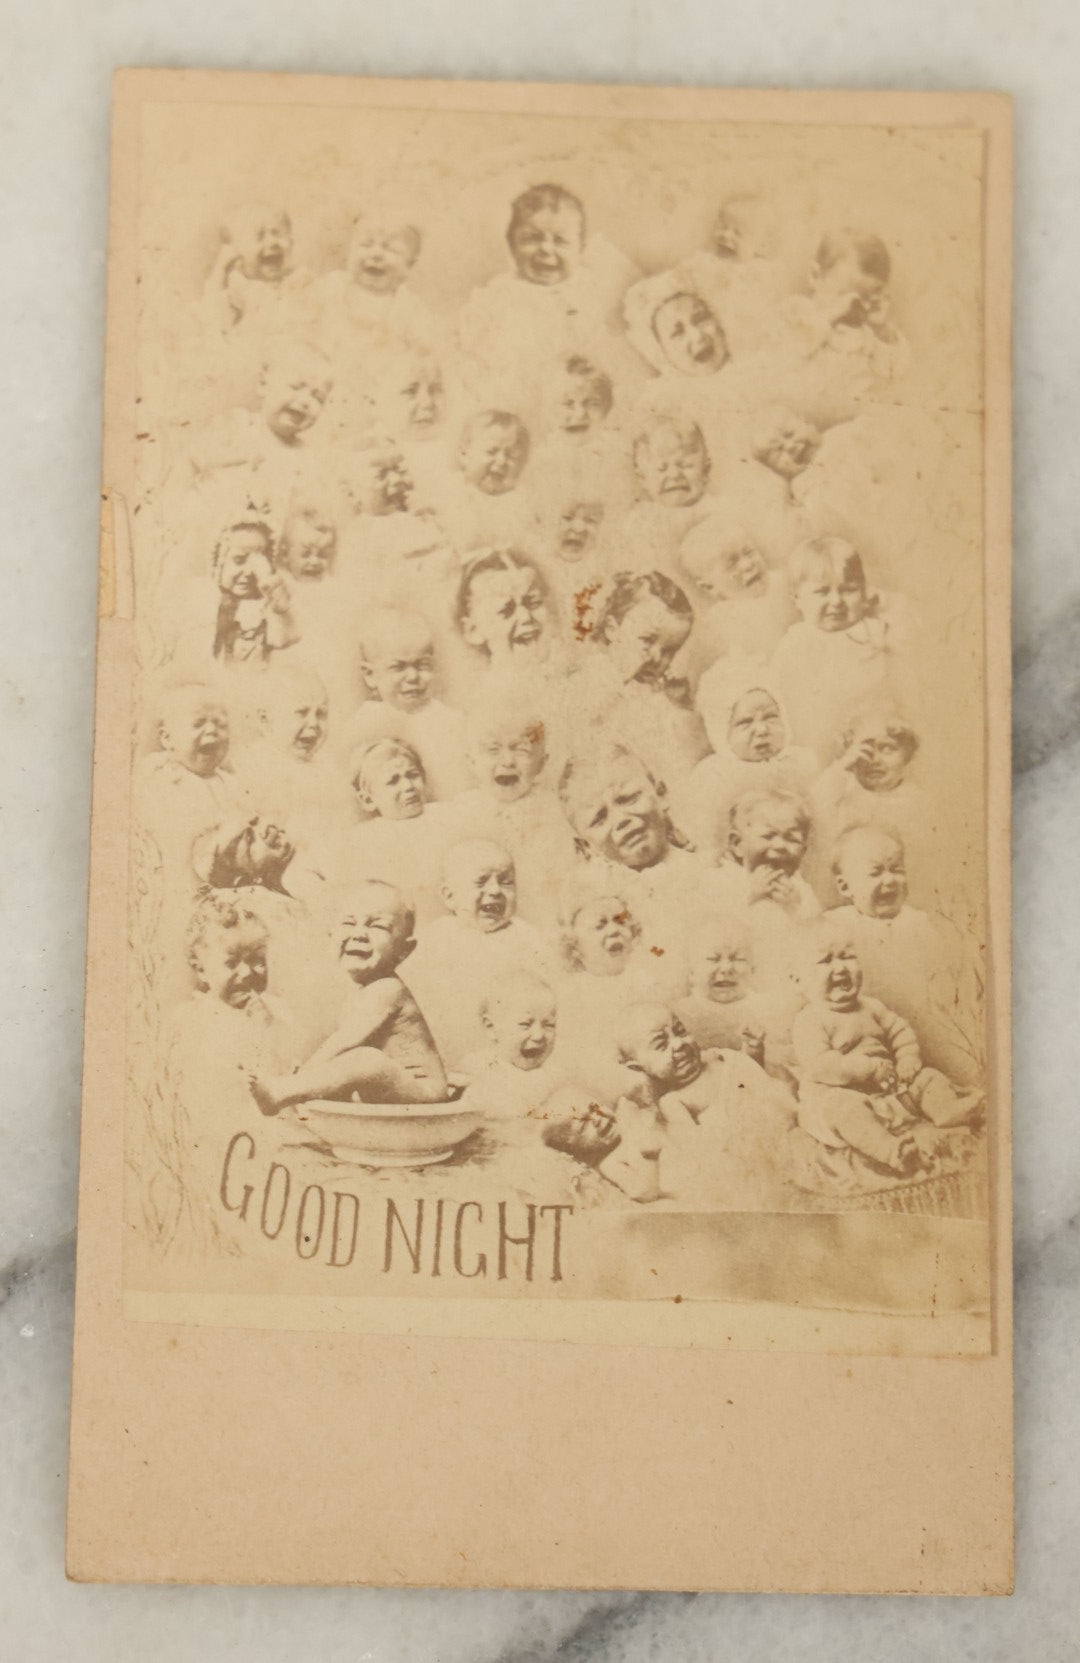 GOOD NIGHT